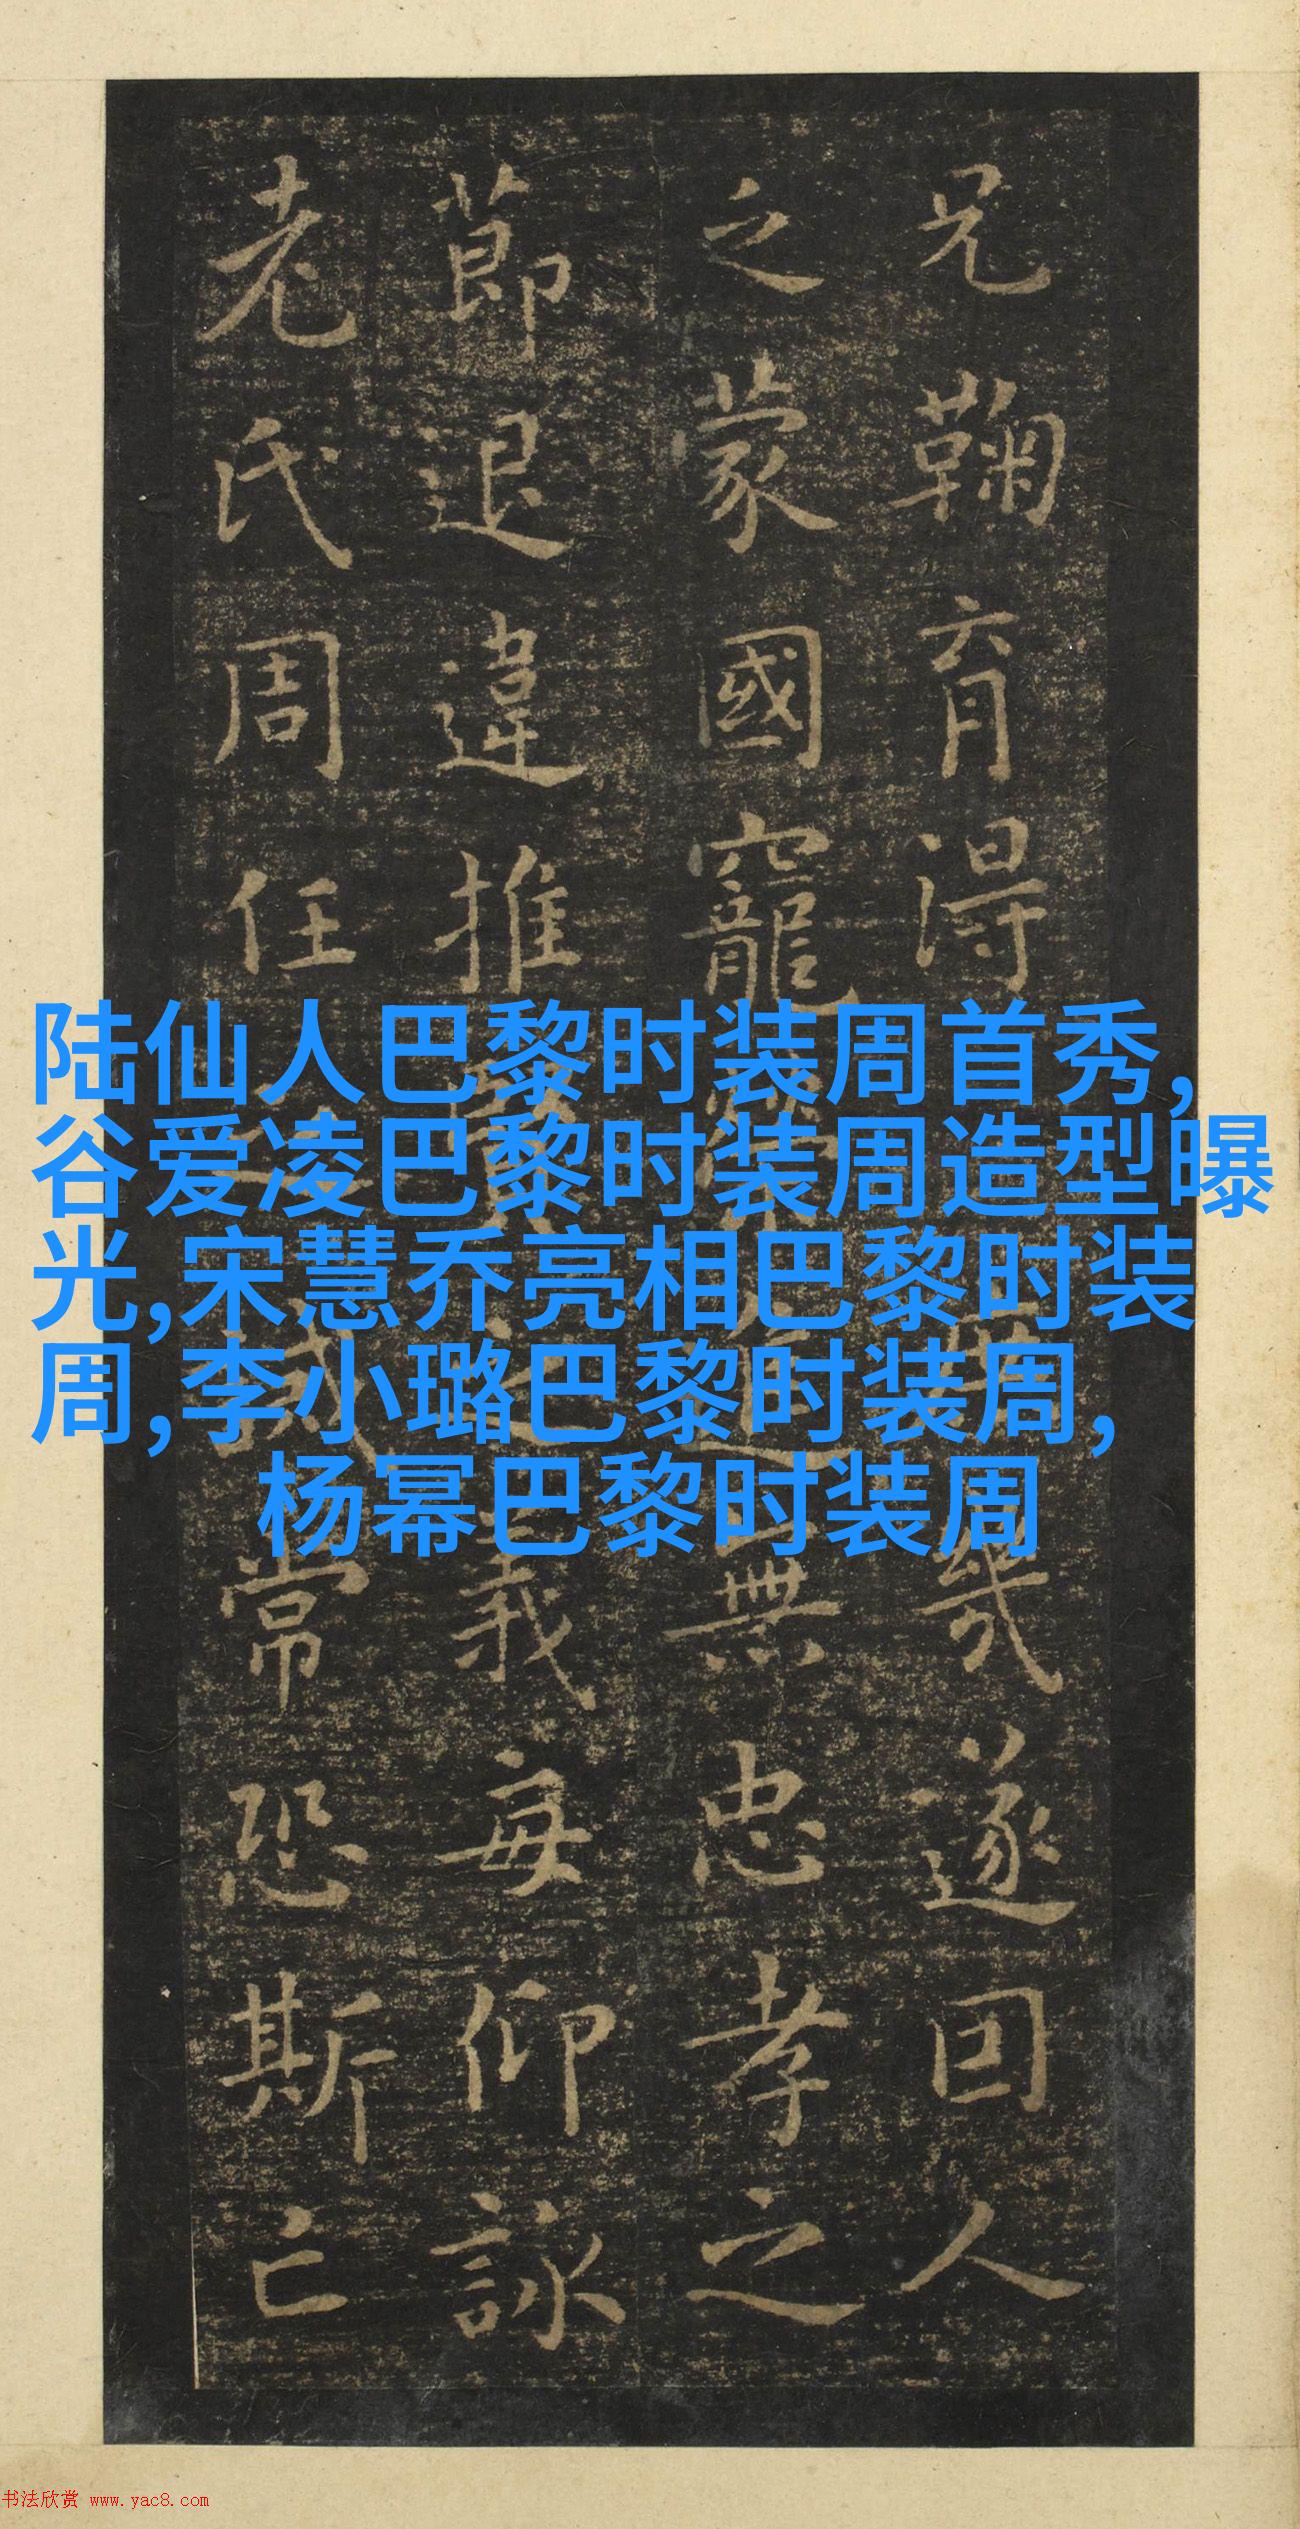 兄鞠育得幾遂因人
之蒙國寵榮進無忠孝之
莭退違推賢之義每仰詠
老氏周任之誡常恐斯亡
陆仙人巴黎时装周首秀,
谷爱凌巴黎时装周造型曝
光,宋慧乔亮相巴黎时装
周,李小璐巴黎时装周,
杨幂巴黎时装周
书法欣赏 www.yac8.com